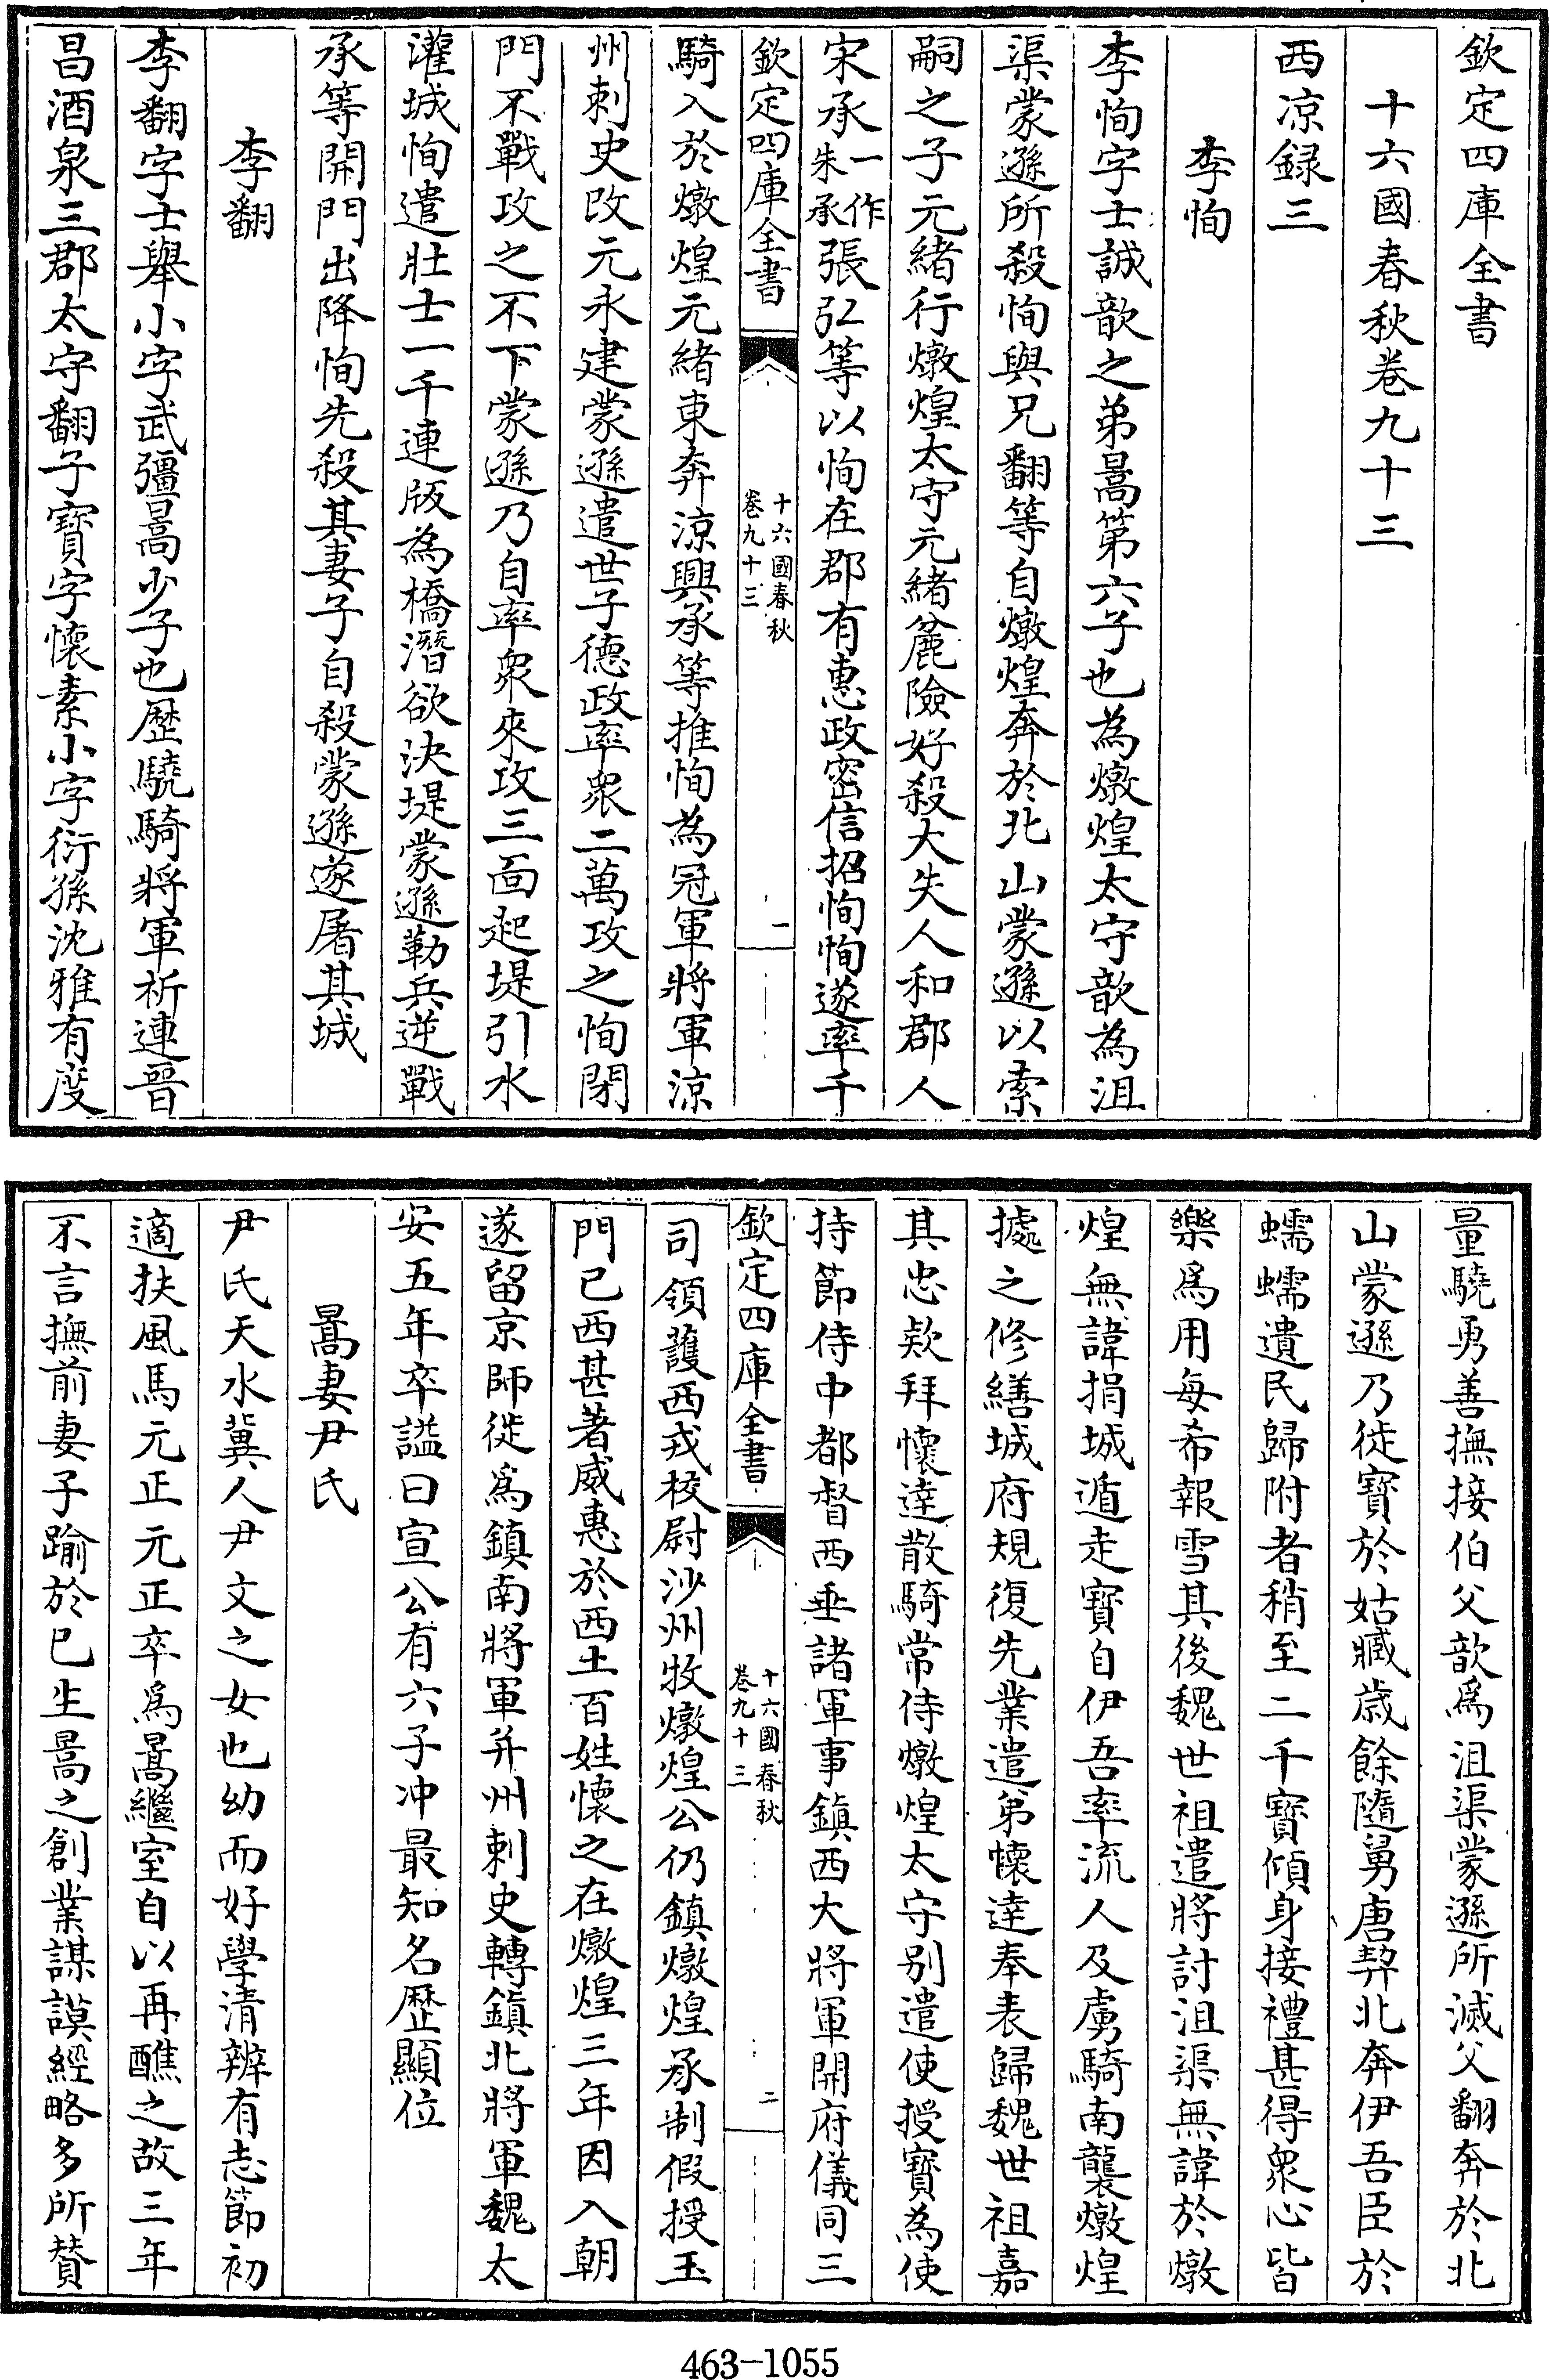 欽定四庫全書
十六國春秋卷九十三
西凉録三
李恂
李恂字士誠歆之弟暠第六子也為燉煌太守歆為沮
渠蒙遜所殺恂與兄翻等自燉煌奔於北山蒙遜以索
嗣之子元緒行燉煌太守元緒麄險好殺大失人和郡人
宋承一作朱承張弘等以恂在郡有惠政密信招恂恂遂率千
欽定四庫全書
十六國春秋
卷九十三
一
騎入於燉煌元緒東奔涼興承等推恂為冠軍將軍涼
州刺史改元永建蒙遜遣世子德政率衆二萬攻之恂閉
門不戰攻之不下蒙遜乃自率衆來攻三面起堤引水
灌城恂遣壯士一千連版為橋潛欲決堤蒙遜勒兵逆戰
承等開門出降恂先殺其妻子自殺蒙遜遂屠其城
李翻
李翻字士舉小字武彊暠少子也歴驍騎將軍祈連晉
昌酒泉三郡太守翻子寳字懷素小字衍孫沈雅有度
量驍勇善撫接伯父歆爲沮渠蒙遜所滅父翻奔於北
山蒙遜乃徙寳於姑臧歳餘隨舅唐契北奔伊吾臣於
蠕蠕遺民歸附者稍至二千寳傾身接禮甚得衆心皆
樂爲用每希報雪其後魏世祖遣將討沮渠無諱於燉
煌無諱捐城遁走寳自伊吾率流人及虜騎南襲燉煌
據之修繕城府規復先業遣弟懷達奉表歸魏世祖嘉
其忠欵拜懷達散騎常侍燉煌太守别遣使授寳為使
持節侍中都督西垂諸軍事鎮西大將軍開府儀同三
欽定四庫全書
十六國春秋
卷九十三
二
司領護西戎校尉沙州牧燉煌公仍鎮燉煌承制假授玉
門已西甚著威惠於西土百姓懷之在燉煌三年因入朝
遂留京師徙爲鎮南將軍并州刺史轉鎮北將軍魏太
安五年卒諡曰宣公有六子冲最知名歴顯位
暠妻尹氏
尹氏天水冀人尹文之女也幼而好學清辨有志節初
適扶風馬元正元正卒爲暠繼室自以再醮之故三年
不言撫前妻子踰於已生暠之創業謀謨經略多所賛
463-1055